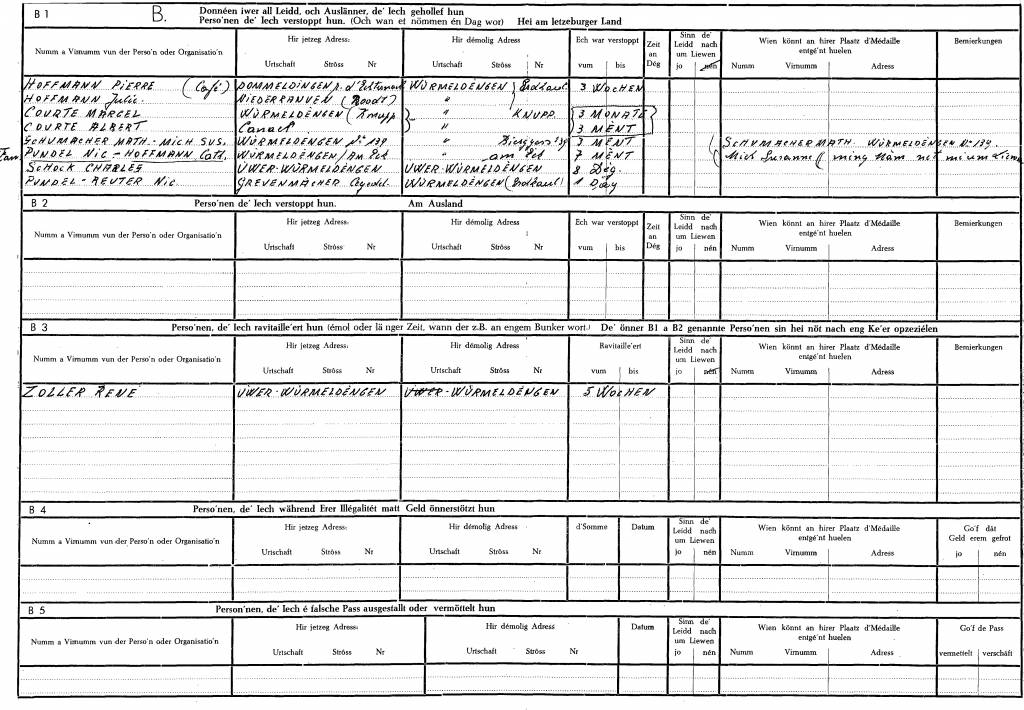 B 1 B. Donnéen iwer all Leidd, och Auslänner, de' Iech gehollef hun
Perso'nen de' Iech verstoppt hun. (Och wan et nömmen én Dag wor) Hei am letzeburger Land
Numm a Virnumm vun der Perso'n oder Organisatio'n
Hir jetzeg Adress:
Urtschaft Ströss Nr
Hir démolig Adress
Urtschaft Ströss Nr
Ech war verstoppt
vum bis
Zeit an Dég
Sinn de' Leidd nach um Liewen
jo nén
Wien könnt an hirer Plaatz d'Médaille entgé'nt huelen
Numm Virnumm Adress
Bemierkungen
HOFFMANN PIERRE (Café) DOMMELDINGEN WÜRMELDENGEN 3 WOCHEN
HOFFMANN Julie. NIEDERANVEN (Roodt) "
COURTE MARCEL WÜRMELDENGEN (Knupp) " KNUPP. 3 MONATE
COURTE ALBERT " 3 MENT
SCHUMACHER MATH.-MICH SUS. WÜRMELDENGEN No 139 " 139 3 MENT SCHUMACHER MATH. WÜRMELDENGEN No 139.
Fam. PUNDEL NIC-HOFFMANN Cath. WÜRMELDENGEN/ " 7 MENT Mich Susanne
SCHOCK CHARLES ÜWER-WÜRMELDENGEN ÜWER-WÜRMELDENGEN 8 Deg.
PUNDEL-REUTER Nic. GREVENMACHER WÜRMELDENGEN 1 Dag
B 2 Perso'nen de' Iech verstoppt hun. Am Ausland
Numm a Virnumm vun der Perso'n oder Organisatio'n
Hir jetzeg Adress:
Urtschaft Ströss Nr
Hir démolig Adress
Urtschaft Ströss Nr
Ech war verstoppt
vum bis
Zeit an Dég
Sinn de' Leidd nach um Liewen
jo nén
Wien könnt an hirer Plaatz d'Médaille entgé'nt huelen
Numm Virnumm Adress
Bemierkungen
B 3 Perso'nen, de' Iech ravitaille'ert hun (émol oder länger Zeit, wann der z.B. an engem Bunker wort.) De' önner B1 a B2 genannte Perso'nen sin hei nöt nach eng Ke'er opzeziélen
Numm a Virnumm vun der Perso'n oder Organisatio'n
Hir jetzeg Adress:
Urtschaft Ströss Nr
Hir démolig Adress
Urtschaft Ströss Nr
Ravitaille'ert
vum bis
Sinn de' Leidd nach um Liewen
jo nén
Wien könnt an hirer Plaatz d'Médaille entgé'nt huelen
Numm Virnumm Adress
Bemierkungen
ZOLLER RENÉ ÜWER-WÜRMELDENGEN ÜWER-WÜRMELDENGEN 5 WOCHEN
B 4 Perso'nen, de' Iech während Erer Illégalitét matt Geld önnerstötzt hun
Numm a Virnumm vun der Perso'n oder Organisatio'n
Hir jetzeg Adress:
Urtschaft Ströss Nr
Hir démolig Adress
Urtschaft Ströss Nr
d'Somme
Datum
Sinn de' Leidd nach um Liewen
jo nén
Wien könnt an hirer Plaatz d'Médaille entgé'nt huelen
Numm Virnumm Adress
Go'f dât Geld erem gefrot
jo nén
B 5 Person'nen, de' Iech é falsche Pass ausgestallt oder vermöttelt hun
Numm a Virnumm vun der Perso'n oder Organisatio'n
Hir jetzeg Adress:
Urtschaft Ströss Nr
Hir démolig Adress
Urtschaft Ströss Nr
Datum
Sinn de' Leidd nach um Liewen
jo nén
Wien könnt an hirer Plaatz d'Médaille entgé'nt huelen
Numm Virnumm Adress
Go'f de Pass
vermettelt verschäft